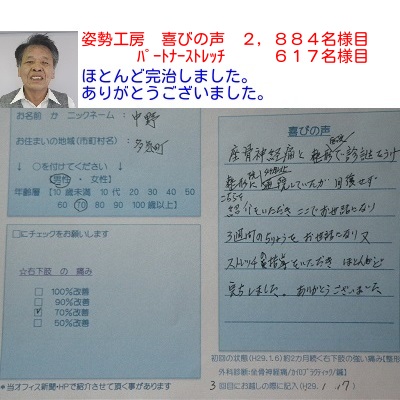 姿勢工房 喜びの声 2,884名様目
パートナーストレッチ 617名様目
ほとんど完治しました。
ありがとうございました。
お名前 か ニックネーム: 中野
お住まいの地域(市町村名):
↓ ○を付けてください ↓
【男性 ・ 女性】
年齢層 【10歳未満 10代 20 30 40 50
60 70 80 90 100歳以上】
□にチェックをお願いします
☆右下肢 の 痛み
□ 100%改善
□ 90%改善
☑ 70%改善
□ 50%改善
*当オフィス新聞・HPで紹介させて頂く事があります
喜びの声
座骨神経痛と整形で診断をうけ
整形に通院していたが 回復せず
こちらを
紹介をいただき ここでお世話になり
3週間のちりょうをお世話になり 又
ストレッチの指導をいただき ほとんど
完ちしました。ありがとうございました
初回の状態(H29.1.6)約2カ月続く右下肢の強い痛み【整形
外科診断:坐骨神経痛/カイロプラクティック/鍼】
3回目にお越しの際に記入(H29. 1. 17)